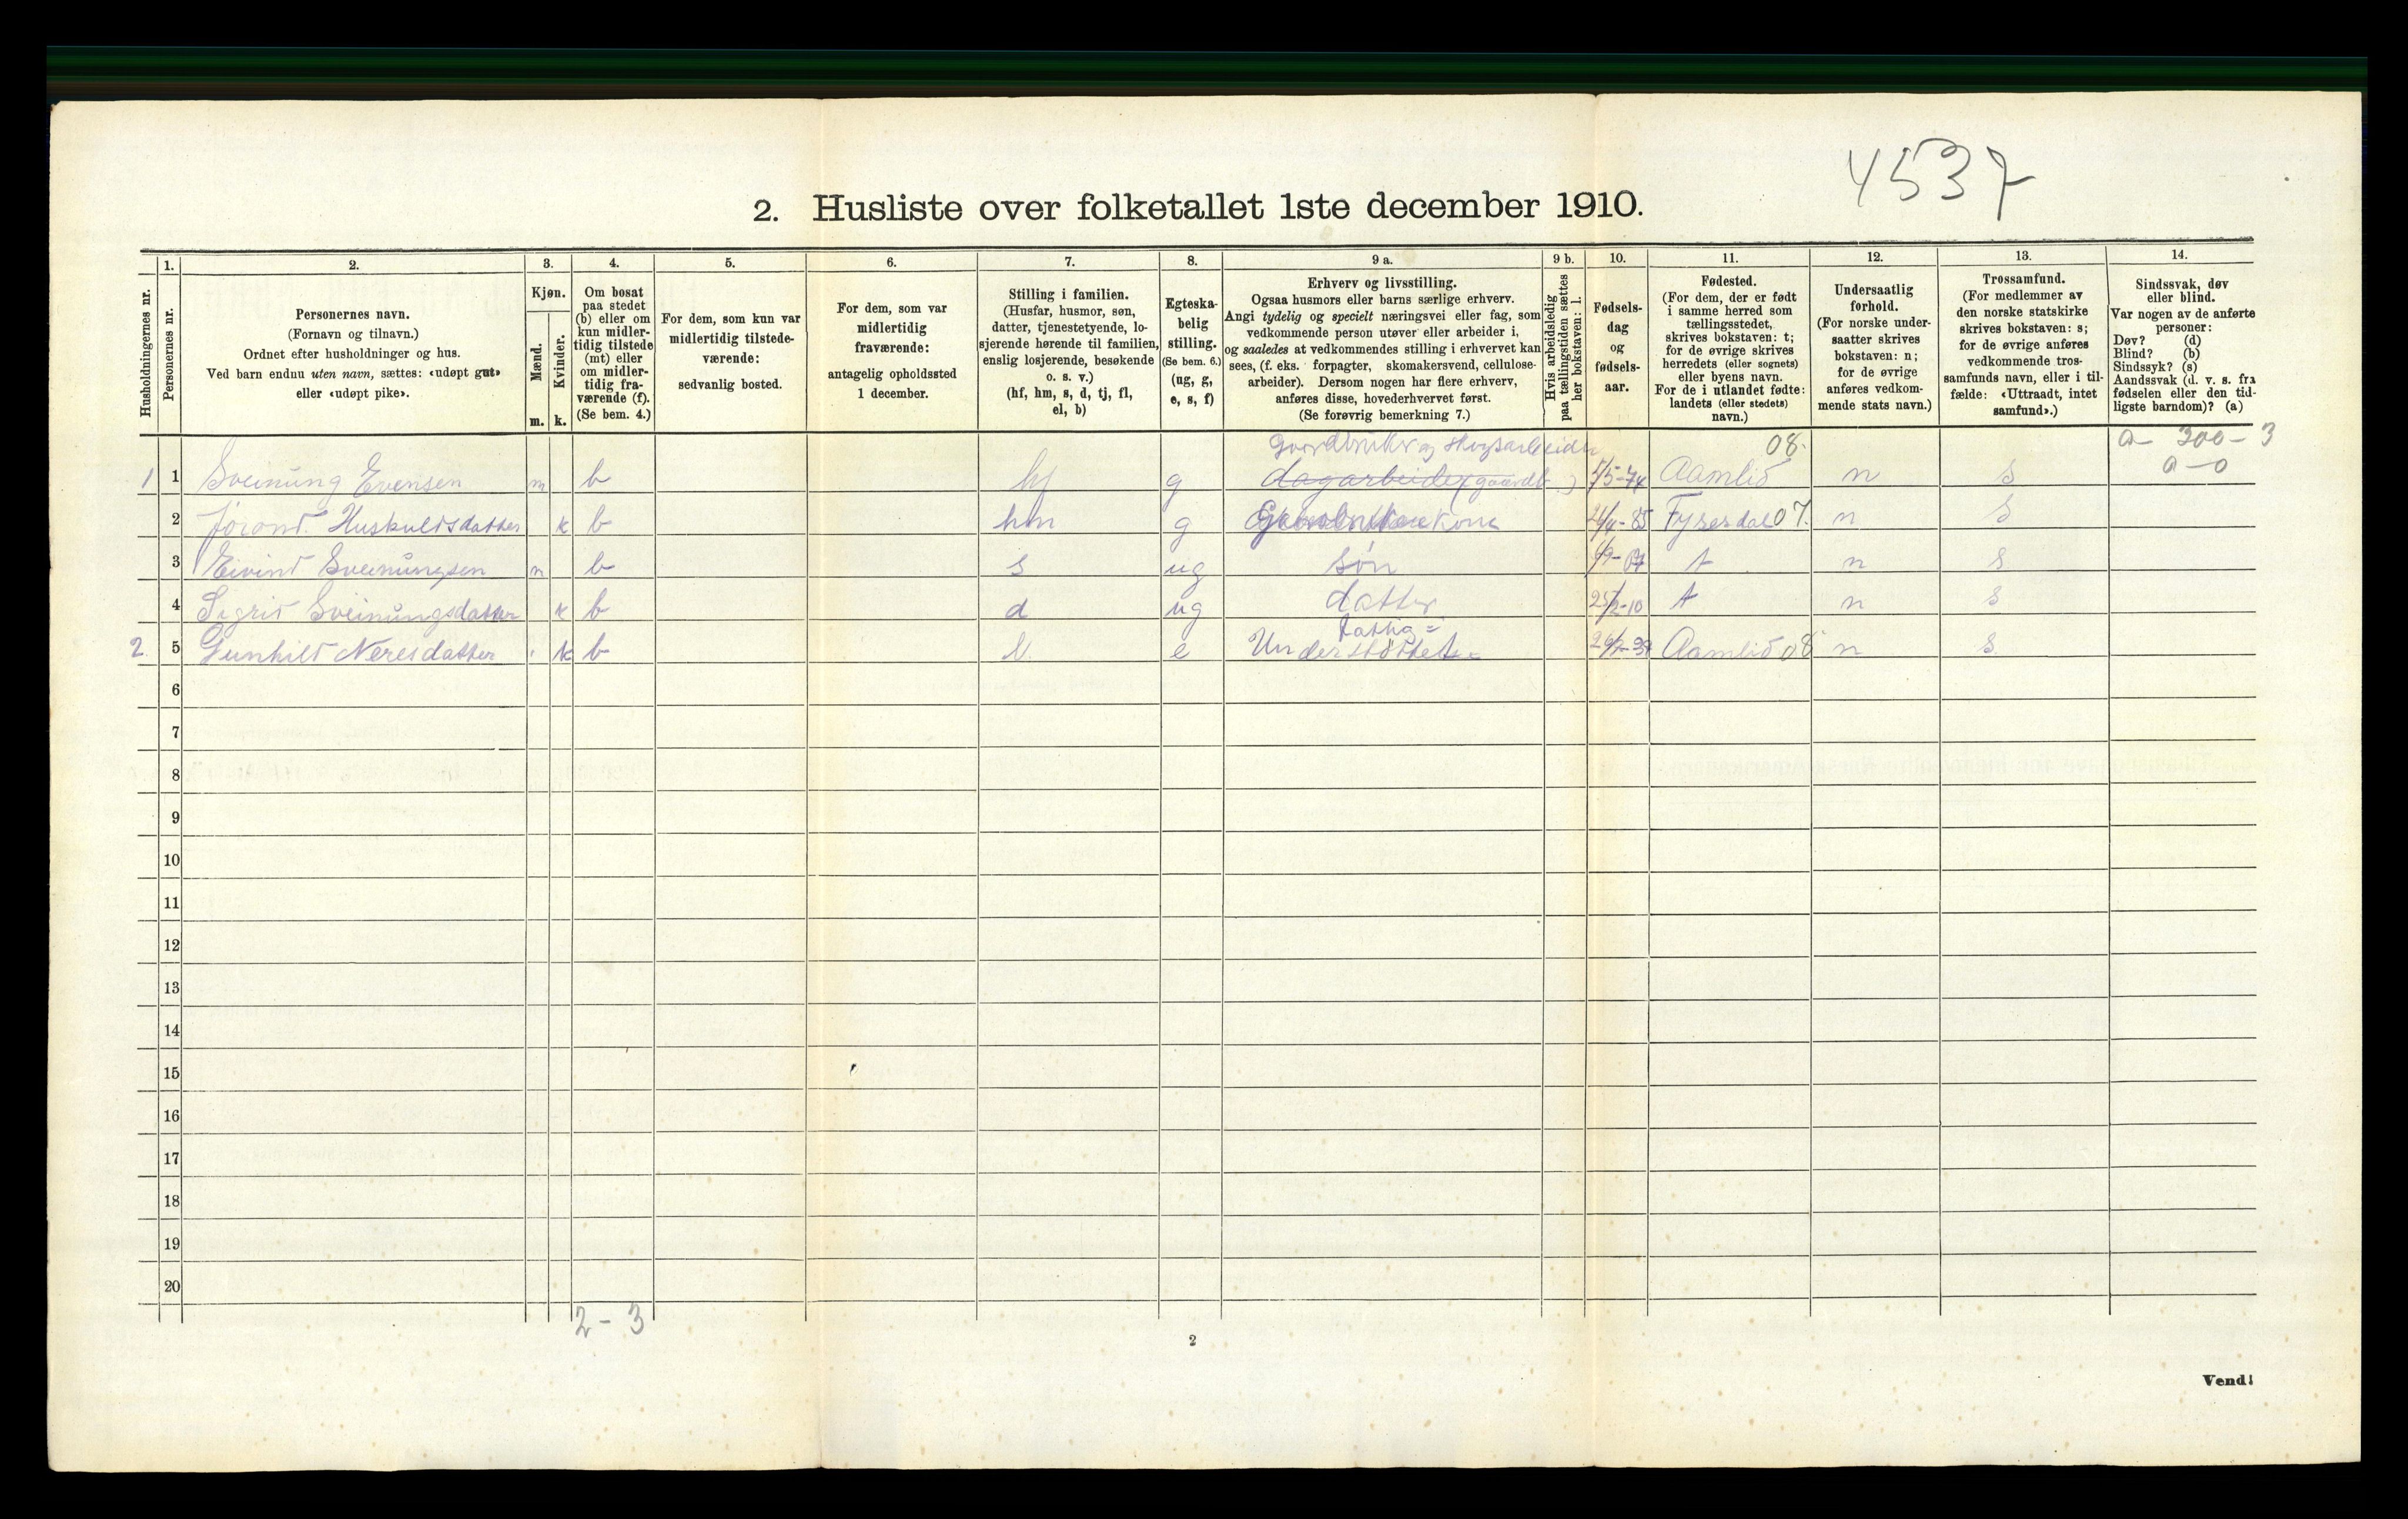 4537
2. Husliste over folketallet 1ste december 1910.
Husholdningernes nr.
1. Personernes nr.
2. Personernes navn.
(Fornavn og tilnavn.)
Ordnet efter husholdninger og hus.
Ved barn endnu uten navn, sættes: «udøpt gut»
eller «udøpt pike».
3. Kjøn.
Mænd. m.
Kvinder. k.
4. Om bosat
paa stedet
(b) eller om
kun midler-
tidig tilstede
(mt) eller
om midler-
tidig fra-
værende (f).
(Se bem. 4.)
5. For dem, som kun var
midlertidig tilstede-
værende:
sedvanlig bosted.
6. For dem, som var
midlertidig
fraværende:
antagelig opholdssted
1 december.
7. Stilling i familien.
(Husfar, husmor, søn,
datter, tjenestetyende, lo-
sjerende hørende til familien,
enslig losjerende, besøkende
o. s. v.)
(hf, hm, s, d, tj, fl,
el, b)
8. Egteska-
belig
stilling.
(Se bem. 6.)
(ug, g,
e, s, f)
9 a. Erhverv og livsstilling.
Ogsaa husmors eller barns særlige erhverv.
Angi tydelig og specielt næringsvei eller fag, som
vedkommende person utøver eller arbeider i,
og saaledes at vedkommendes stilling i erhvervet kan
sees, (f. eks. forpagter, skomakersvend, cellulose-
arbeider). Dersom nogen har flere erhverv,
anføres disse, hovederhvervet først.
(Se forøvrig bemerkning 7.)
9 b. Hvis arbeidsledig
paa tællingstiden sættes
her bokstaven: l.
10. Fødsels-
dag
og
fødsels-
aar.
11. Fødested.
(For dem, der er født
i samme herred som
tællingsstedet,
skrives bokstaven: t;
for de øvrige skrives
herredets (eller sognets)
eller byens navn.
For de i utlandet fødte:
landets (eller stedets)
navn.)
12. Undersaatlig
forhold.
(For norske under-
saatter skrives
bokstaven: n;
for de øvrige
anføres vedkom-
mende stats navn.)
13. Trossamfund.
(For medlemmer av
den norske statskirke
skrives bokstaven: s;
for de øvrige anføres
vedkommende tros-
samfunds navn, eller i til-
fælde: «Uttraadt, intet
samfund».)
14. Sindssvak, døv
eller blind.
Var nogen av de anførte
personer:
Døv? (d)
Blind? (b)
Sindssyk? (s)
Aandssvak (d. v. s. fra
fødselen eller den tid-
ligste barndom)? (a)
Gaardbruker og skogsarbeider 08. a - 300 - 3
1 1 Sveinung Evensen m b hf g dagarbeider (gaardb.) 5/5-74 Aamlid n s a - 0
2 Jørond. Huskuldsdatter k b hm g kone 85 Fyresdal 07. n s
3 Eivind Sveinungsen m b s ug søn t n s
4 Sigrid Sveinungsdatter k b d ug datter 25/2-10 t n s
fattig=
2. 5 Gunhild Neresdatter k b e Understøttet= Aamlid 08 n s
6
7
8
9
10
11
12
13
14
15
16
17
18
19
20
2 - 3
2
Vend!